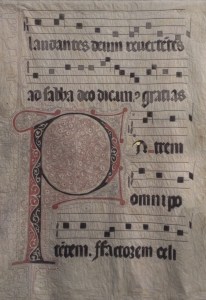 laudantes deum revertētes
ad sabba deo dicamꝰ gratias
Patrem
omnipo
tētem. ffactorem celi